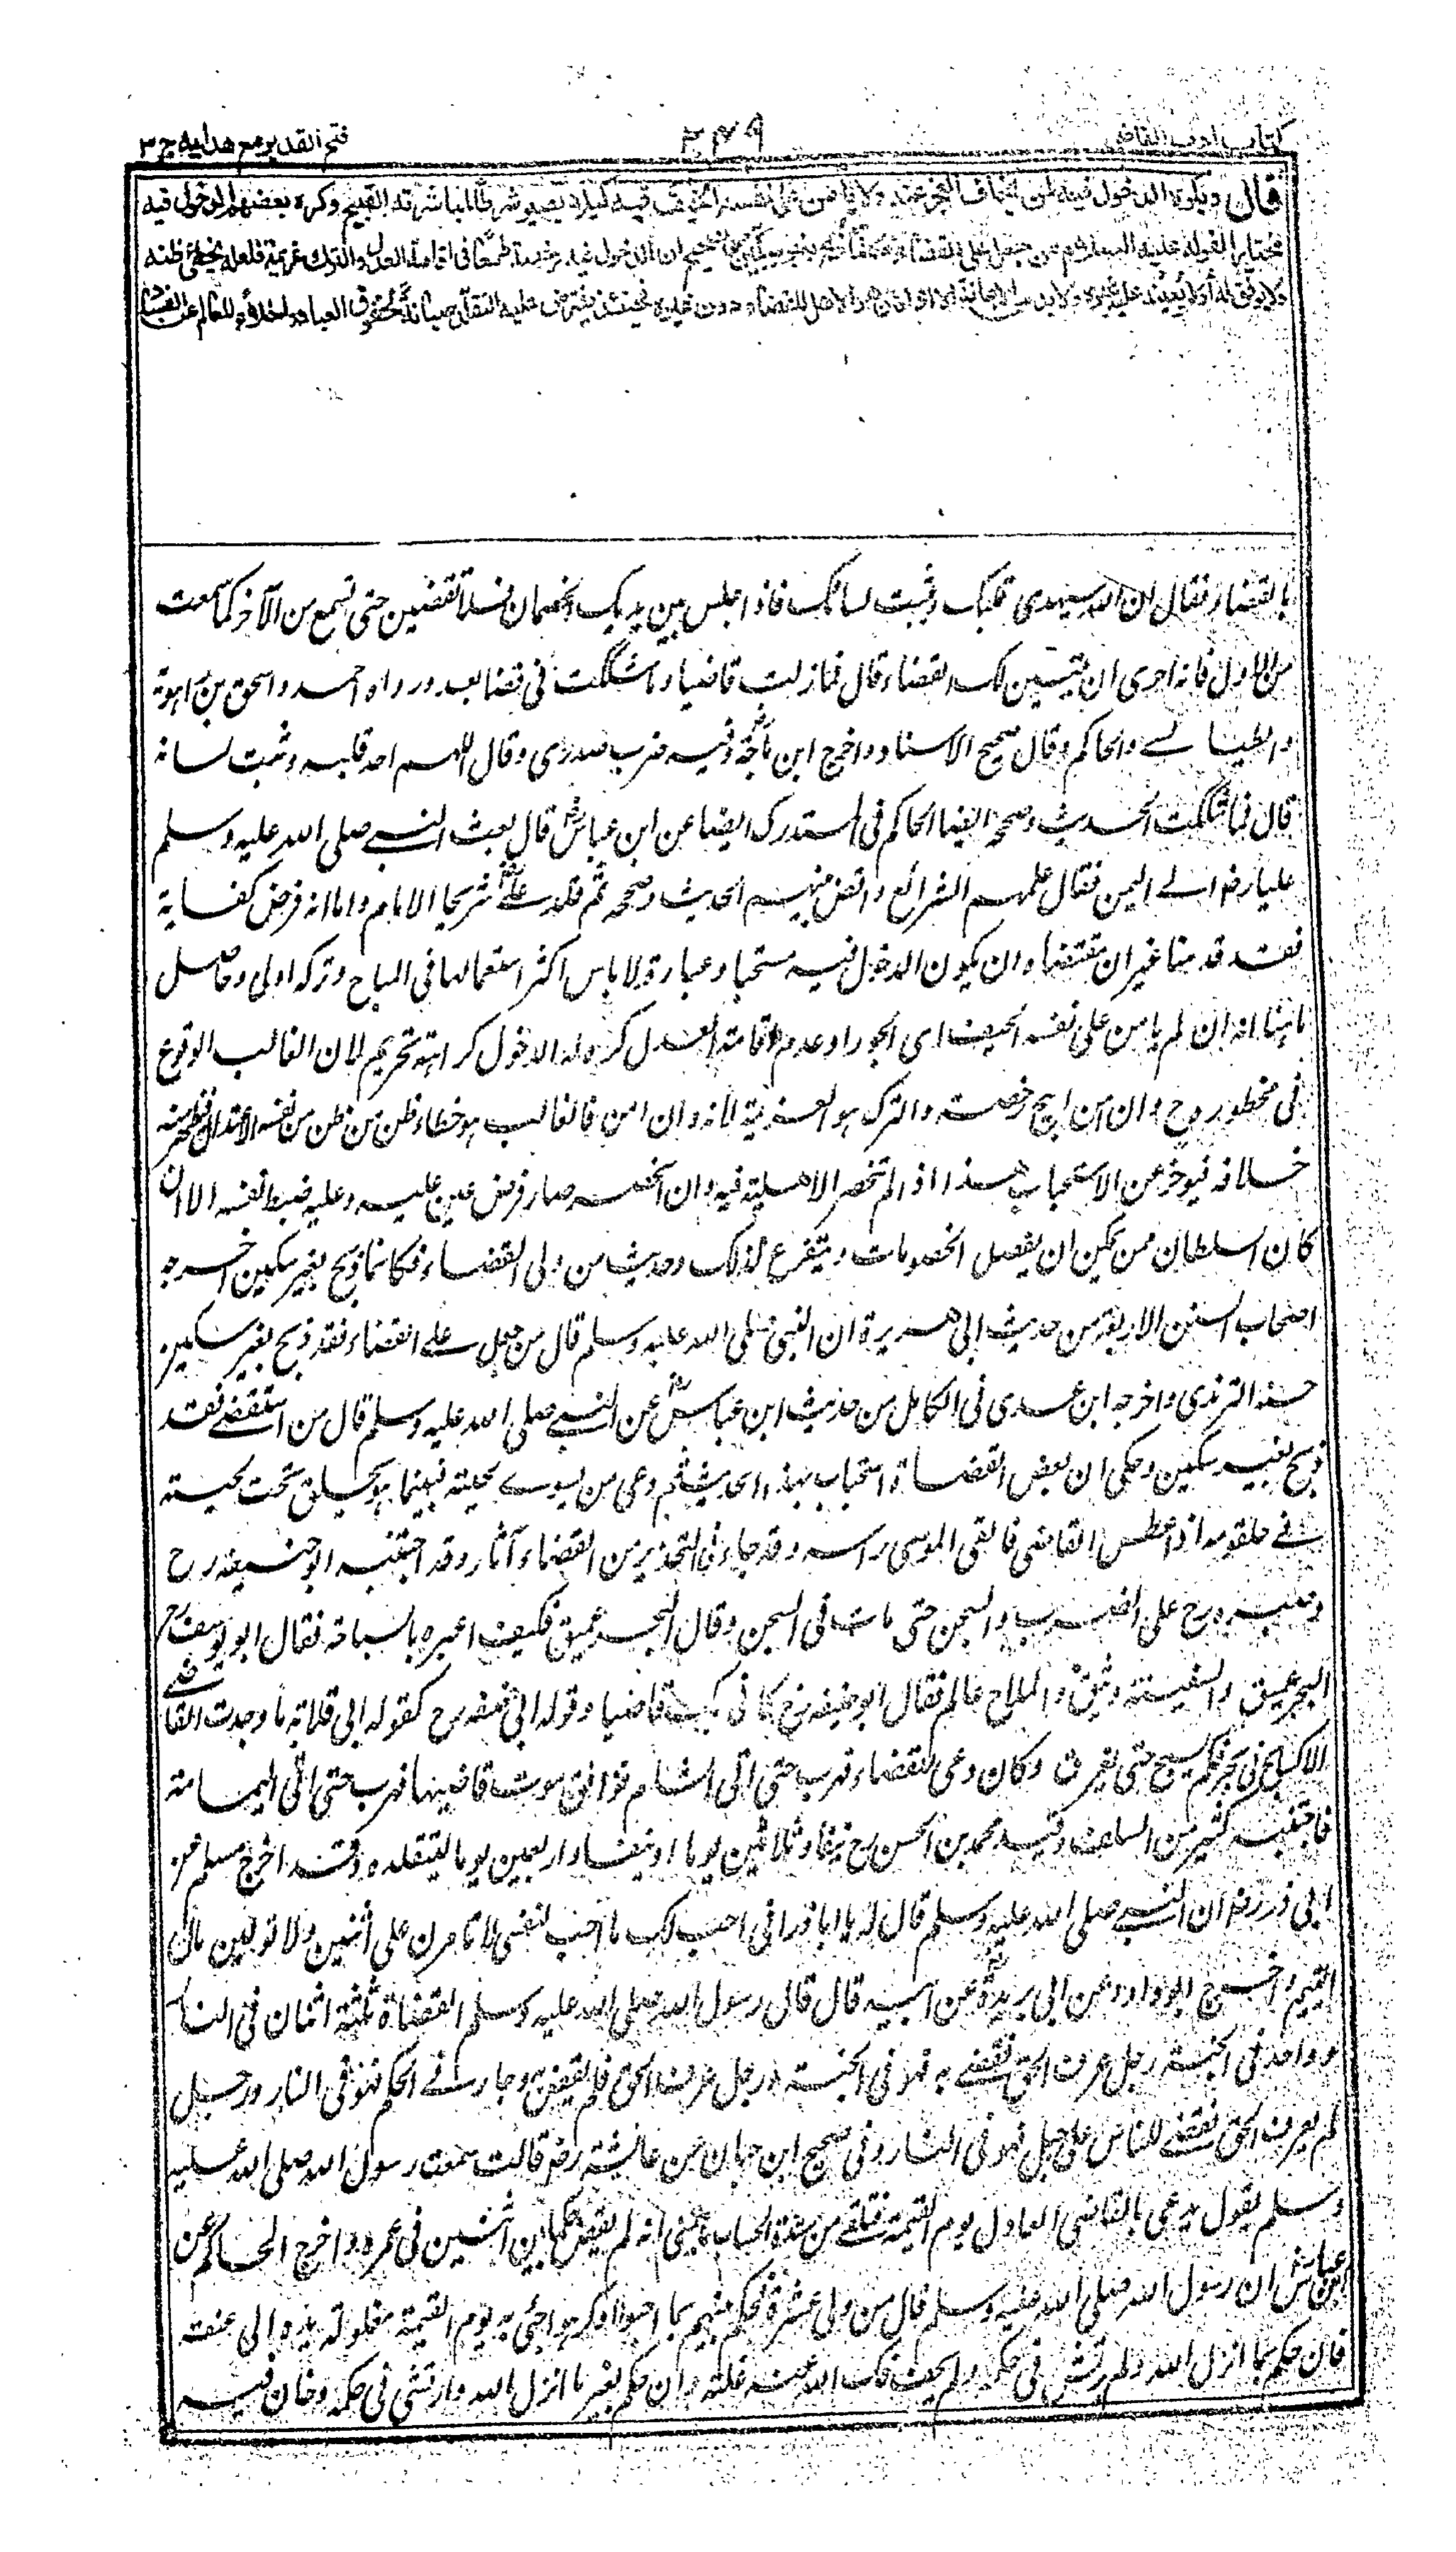 كتاب ادب القاضى ٣٤٩ فتح القدير مع هدايه ج ٣
قال ويكره الدخول فيه لمن يخاف العجز عنه ولا يأمن على نفسه الحيف فيه كيلا يصير شرطًا لمباشرته القبيح وكره بعضهم الدخول فيه
مختارا لقوله عليه السلام من جعل على القضاء فكأنما ذبح بغير سكين والصحيح ان الدخول فيه رخصة طمعًا فى اقامة العدل والترك عزيمة فلعله يخطئ ظنه
ولا يوفق له أو لا يعينه عليه غيره ولا بد من الاعانة الا اذا كان هو الاهل للقضاء دون غيره فحينئذ يفترض عليه التقلد صيانةً لحقوق العباد واخلاءً للعالم عن الفساد
بالقضاء فقال ان الله سيهدى قلبك ويثبت لسانك فاذا جلس بين يديك الخصمان فلا تقضين حتى تسمع من الآخر كما سمعت
من الاول فانه احرى ان يتبين لك القضاء قال فما زلت قاضيا وما شككت فى قضاء بعد ورواه احمد واسحق بن راهوية
والطيالسے والحاكم وقال صحيح الاسناد واخرج ابن ماجة وفيه ضرب صدرى وقال اللهم اهد قلبه وثبت لسانه
قال فما شككت الحديث وصححه ايضا الحاكم فى المستدرك ايضا عن ابن عباس رض قال بعث النبے صلى الله عليه وسلم
عليا رض الے اليمن فقال علمهم الشرائع واقض بينهم الحديث وصححه ثم قلد علے رض شريحا الامام واما انه فرض كفاية
فقد قدمنا غير ان مقتضاه ان يكون الدخول فيه مستحبا وعبارة لا باس اكثر استعمالها فى المباح وتركه اولى وحاصل
ما هنا انه ان لم يامن على نفسه الحيف اى الجور او عدم اقامة العدل كره له الدخول كراهة تحريم لان الغالب الوقوع
فى محظوره ح وان امن ابيح رخصة والترك هو العزيمة لانه وان امن فالغالب هو خطاء ظن من ظن من نفسه الاعتدال فيظهر منه
خلافه فيؤخر عن الاستحباب هذا اذا لم تنحصر الاهلية فيه وان انحصر صار فرض عين عليه وعليه ضبط نفسه الا ان
كان السلطان ممن يمكن ان يفصل الخصومات ويتفرغ لذلك وحديث من ولى القضاء فكانما ذبح بغير سكين اخرجه
اصحاب السنن الاربعة من حديث ابى هريرة ان النبى صلى الله عليه وسلم قال من جعل علے القضاء فقد ذبح بغير سكين
حسنه الترمذى واخرجه ابن عدى فى الكامل من حديث ابن عباس رض عن النبے صلى الله عليه وسلم قال من استقضے فقد
ذبح بغير سكين وحكى ان بعض القضاة استخف بهذا الحديث ثم دعى من يسوے لحيته فبينما هو يحلق تحت لحيته
فے حلقومه اذ عطس القاضى فالقى الموسى راسه وقد جاء فى التحذير من القضاء آثار وقد اجتنبه ابو حنيفه رح
وصبره رح على الضرب والسجن حتى مات فى السجن وقال البحر عميق فكيف اعبره بالسباحة فقال ابو يوسف رح
البحر عميق والسفينة وثيق والملاح عالم فقال ابو حنيفه رح كانى بك قاضيا وقوله ابى حنيفه رح كقوله ابى قلابة ما وجدت القاضے
الا كسابح فى بحر فكم يسبح حتى يغرق وكان دعى للقضاء فهرب حتى اتى الشام فوافق موت قاضيها فهرب حتى اتى اليمامة
فاجتنبه كثير من السلف وقيد محمد بن الحسن رح نيفا وثلاثين يوما او نيفا واربعين يوما ليتقلده وقد اخرج مسلم عن
ابى ذر رض ان النبے صلى الله عليه وسلم قال له يا اباذر انى احب لك ما احب لنفسى لا تامرن على اثنين ولا تولين مال
اليتيم واخرج ابو داود عن ابى بريدة عن ابيه قال قال رسول الله صلى الله عليه وسلم القضاة ثلثة اثنان فى النار
وواحد فى الجنة رجل عرف الحق فقضے به فهو فى الجنة ورجل عرف الحق فلم يقض به وجار فے الحكم فهو فى النار ورجل
لم يعرف الحق فقضے للناس على جهل فهو فى النار وفى صحيح ابن حبان عن عائشة رض قالت سمعت رسول الله صلى الله عليه
وسلم يقول يدعى بالقاضى العادل يوم القيمة فيلقے من شدة الحساب ما يتمنى انه لم يقض بين اثنين فى عمره واخرج الحاكم عن
ابن عباس ان رسول الله صلى الله عليه وسلم قال من ولى عشرة فحكم بينهم بما احبوا او كرهوا جئى به يوم القيمة مغلولة يده الى عنقه
فان حكم بما انزل الله ولم يرتش فى حكمه ولم يحف فك الله عنه غلته وان حكم بغير ما انزل الله وارتشى فى حكمه وخان فيه